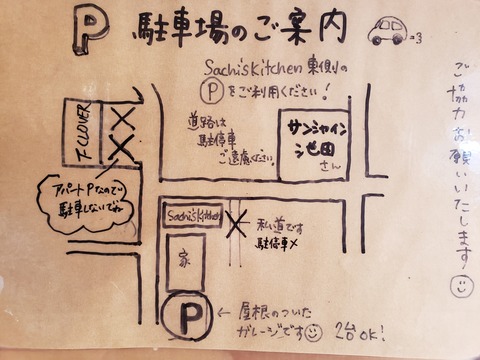 P 駐車場のご案内
Sachi'sKitchen 東側の
Pをご利用ください!
道路は
駐停車
ご遠慮ください。
サンシャイン
池田
さん
アパートPなので
駐車しないでね
Sachi'sKitchen
私道です
駐停車×
家
P
← 屋根のついた
ガレージです 2台OK!
ご協力お願いいたします!